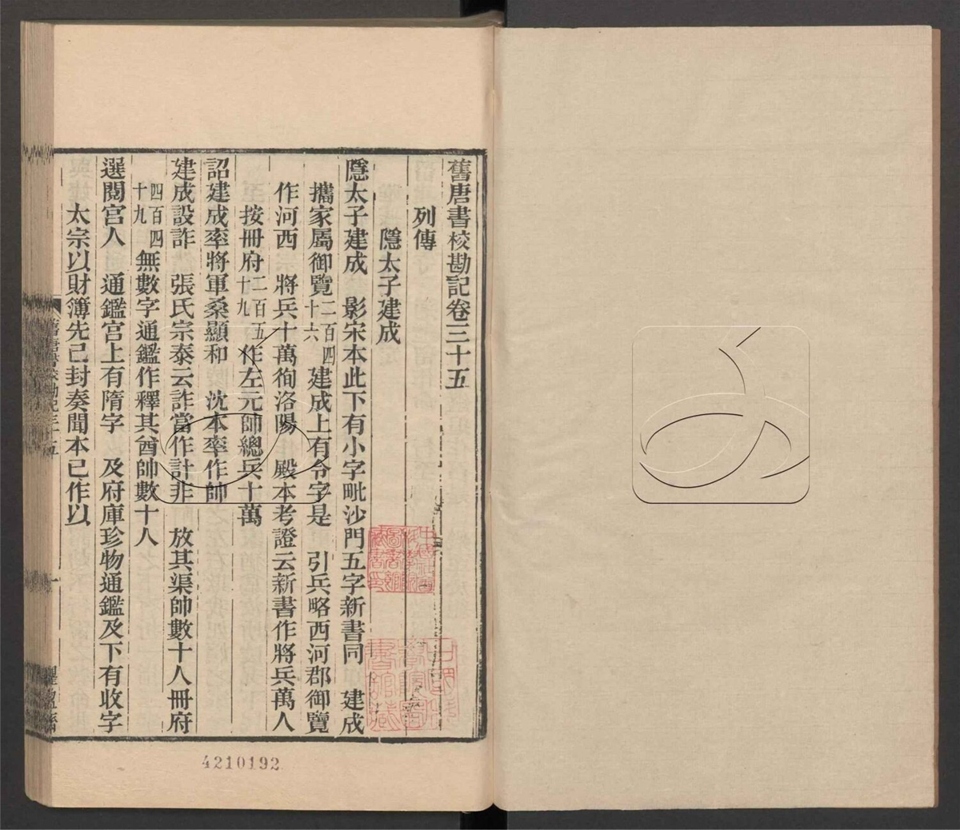 舊唐書校勘記卷三十五
列傳
隱太子建成
隱太子建成　影宋本此下有小字毗沙門五字新書同　建成
攜家屬御覽二百四十六建成上有令字是　引兵略西河郡御覽
作河西　將兵十萬徇洛陽　殿本考證云新書作將兵萬人
按冊府二百五十九作左元帥總兵十萬
詔建成率將軍桑顯和　沈本率作帥
建成設詐　張氏宗泰云詐當作計非　放其渠帥數十人冊府
四百四十九無數字通鑑作釋其酋帥數十人
選閱宫人　通鑑宫上有隋字　及府庫珍物通鑑及下有收字
太宗以財簿先已封奏聞本已作以
4210192